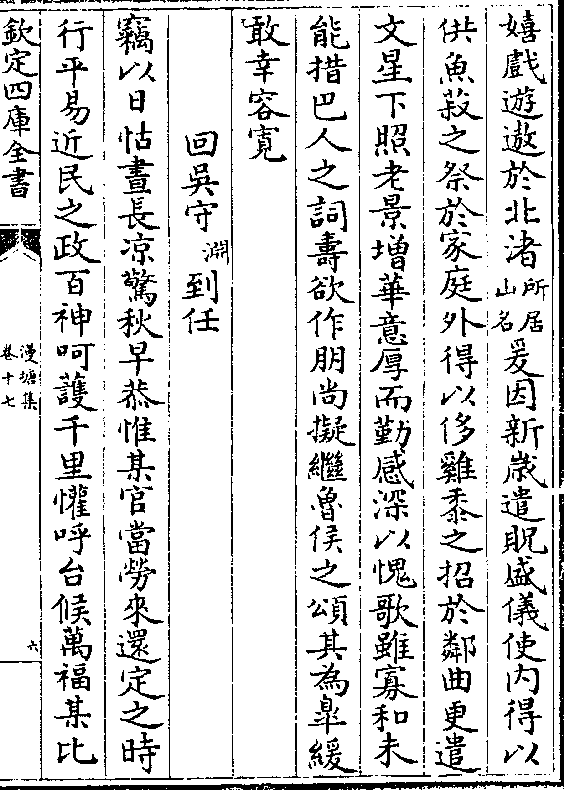 嬉戲遊遨於北渚所居山名爰因新歳遣貺盛儀使内得以
供魚菽之祭於家庭外得以侈雞黍之招於鄰曲更遣
文星下照老景増華意厚而勤感深以愧歌雖寡和未
能措巴人之詞壽欲作朋尚擬繼魯侯之頌其為臯緩
敢幸容寛
回吳守淵到任
竊以日怙晝長凉驚秋早恭惟某官當勞來還定之時
行平易近民之政百神呵䕶千里懽呼台候萬福某比
欽定四庫全書
漫塘集
卷十七
六